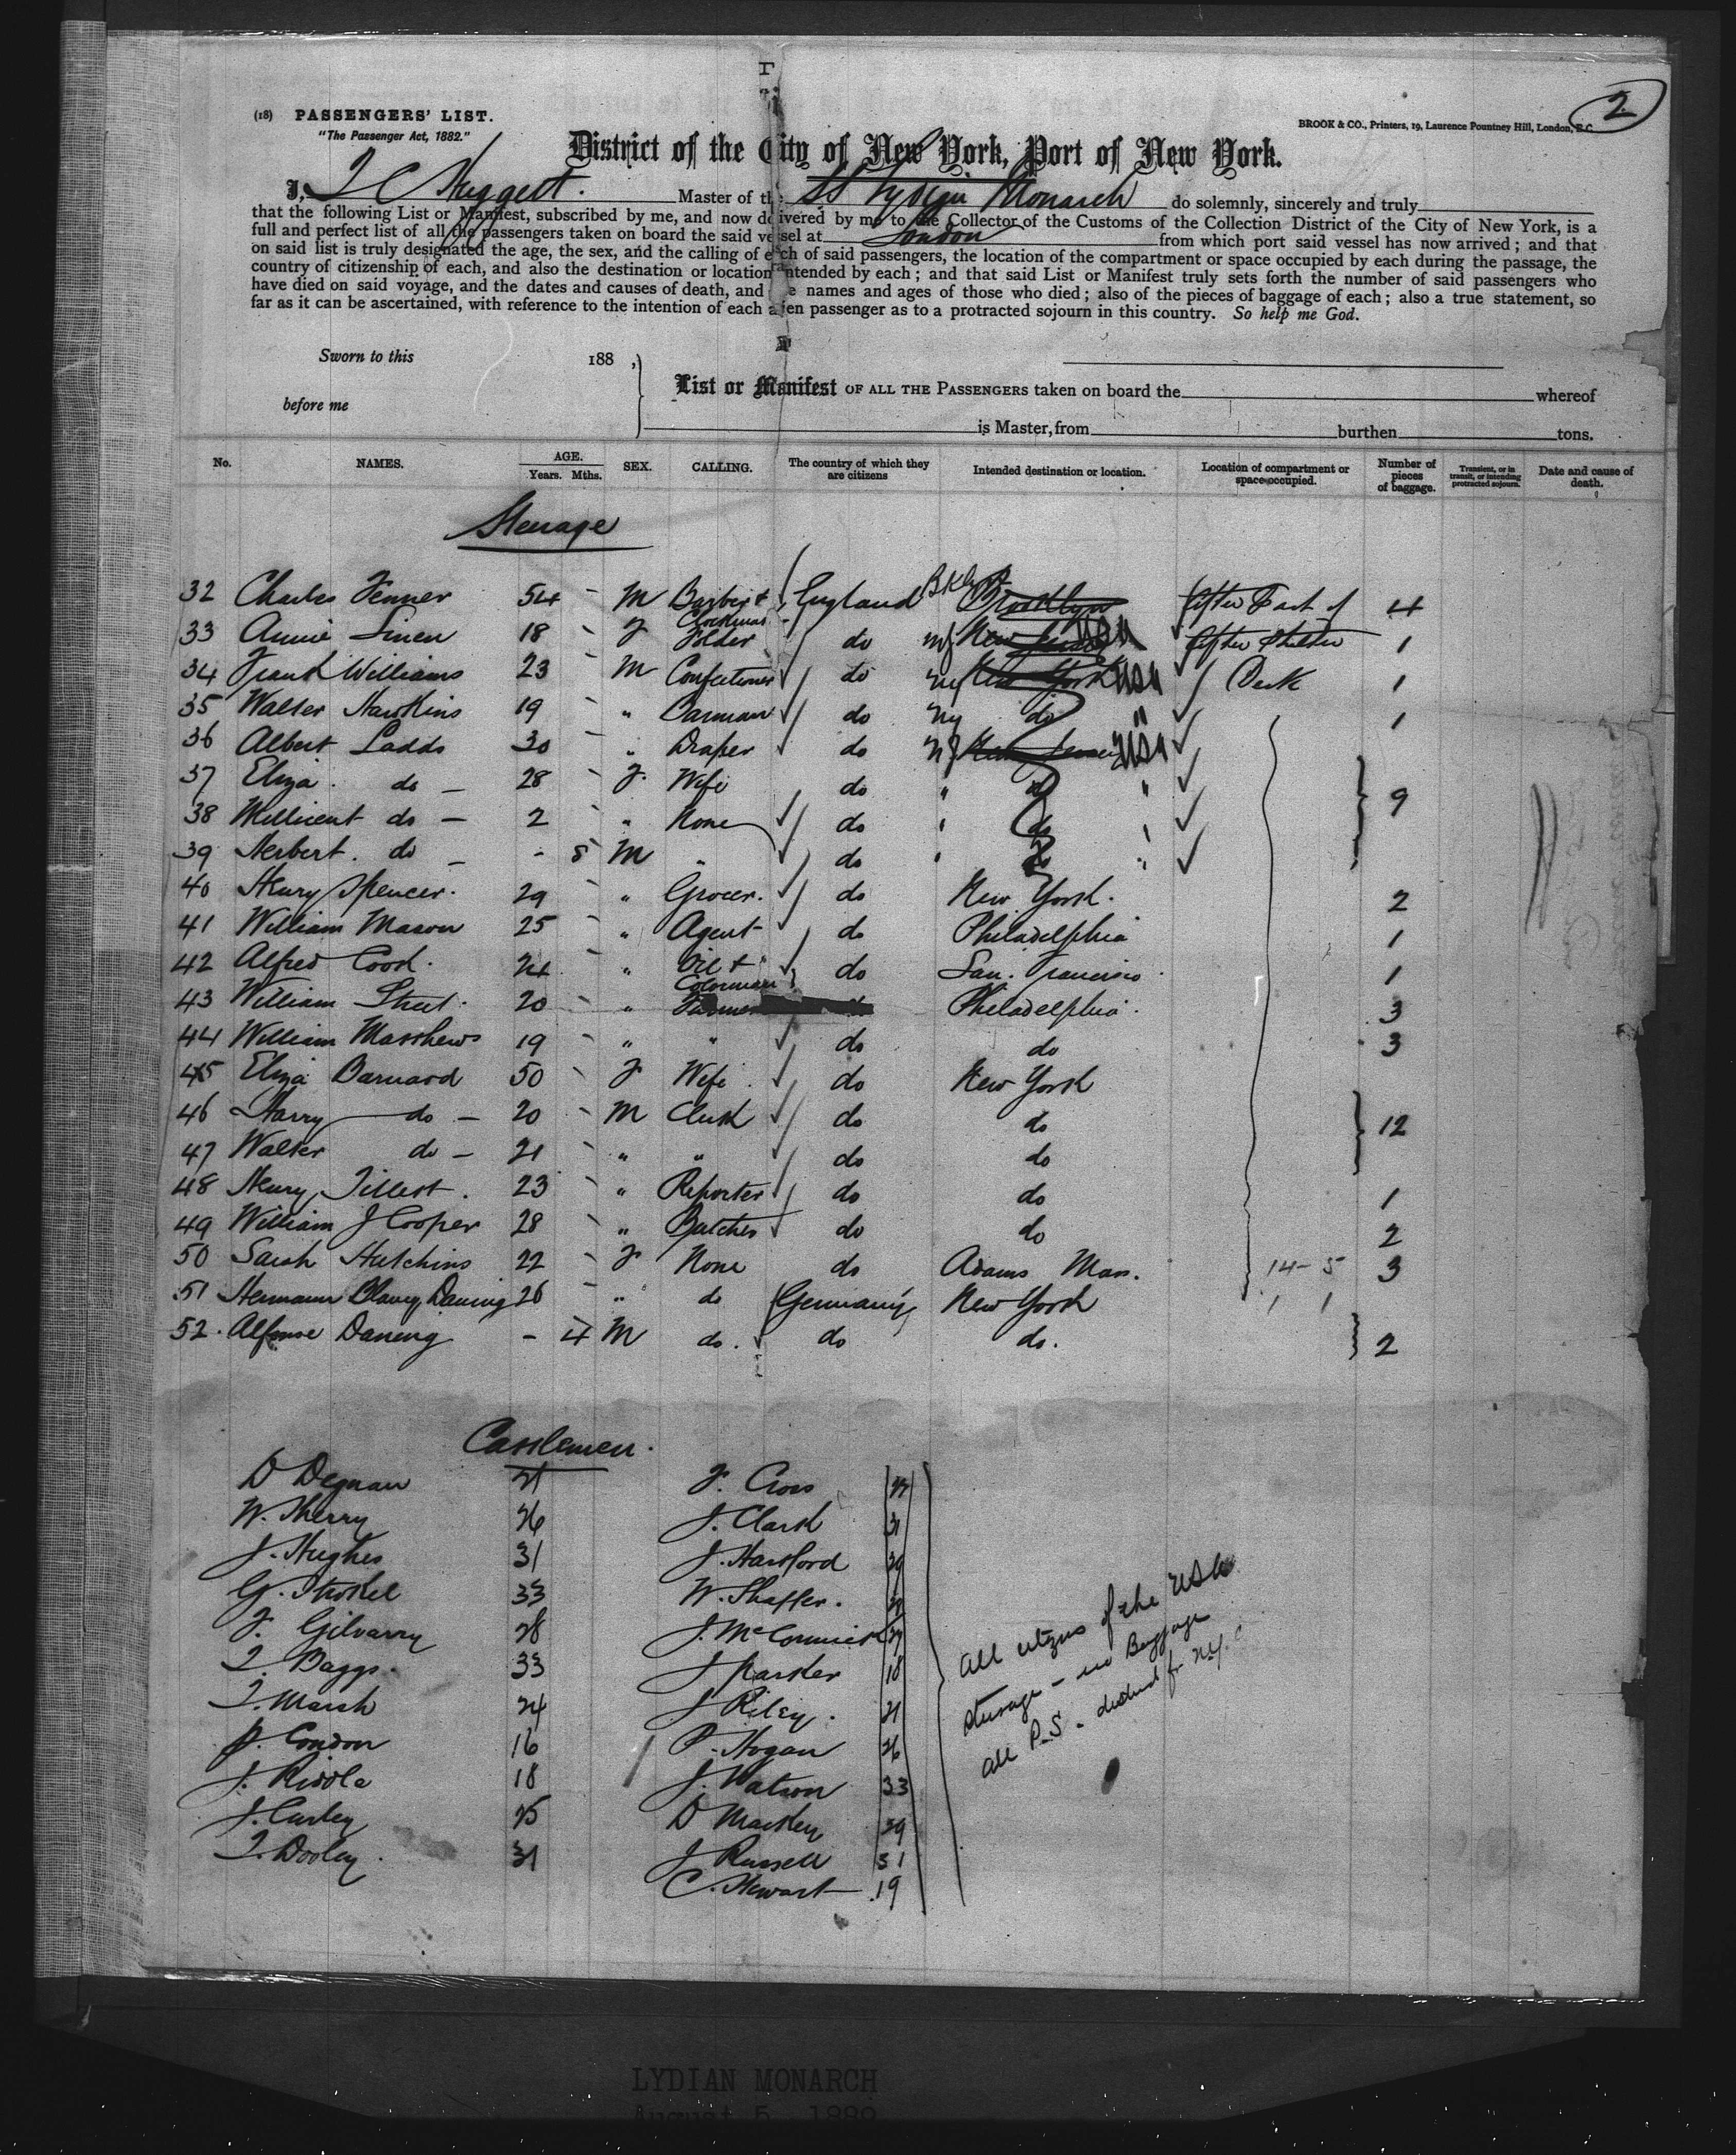 2
(18) PASSENGERS' LIST.
"The Passenger Act, 1882."
BROOK & CO., Printers, 19, Laurence Pountney Hill, London, E.C.
District of the City of New York, Port of New York.
I, Huggett. Master of the SS Lydian Monarch do solemnly, sincerely and truly
that the following List or Manifest, subscribed by me, and now delivered by me to the Collector of the Customs of the Collection District of the City of New York, is a
full and perfect list of all the passengers taken on board the said vessel at London from which port said vessel has now arrived; and that
on said list is truly designated the age, the sex, and the calling of each of said passengers, the location of the compartment or space occupied by each during the passage, the
country of citizenship of each, and also the destination or location intended by each; and that said List or Manifest truly sets forth the number of said passengers who
have died on said voyage, and the dates and causes of death, and the names and ages of those who died; also of the pieces of baggage of each; also a true statement, so
far as it can be ascertained, with reference to the intention of each alien passenger as to a protracted sojourn in this country. So help me God.
Sworn to this 188 ,
before me
List or Manifest OF ALL THE PASSENGERS taken on board the whereof
is Master, from burthen tons.
No. NAMES. AGE. Years. Mths. SEX. CALLING. The country of which they are citizens Intended destination or location. Location of compartment or space occupied. Number of pieces of baggage. Transient, or in transit, or intending protracted sojourn. Date and cause of death.
Steerage
32 Charles Fenner 54 - M England Bkln Brooklyn After Part of 4
33 Annie Linen 18 F Folder do NJ New Jersey USA After Shelter 1
34 Frank Williams 23 M Confectioner do NY New York USA Deck 1
35 Walter Hawkins 19 " Carman do NY do " 1
36 Albert Ladds 30 " Draper do NJ New Jersey USA
37 Eliza do - 28 F Wife do " do " 9
38 Millicent do - 2 " None do " do "
39 Herbert do - - 8 M " do " do "
40 Henry Spencer. 29 " Grocer. do New York. 2
41 William Mason 25 " Agent do Philadelphia 1
42 Alfred Cook. 24 " Oil & Colorman do San Francisco 1
43 William Street. 20 " Farmer do Philadelphia. 3
44 William Matthews 19 " " do do 3
45 Eliza Barnard 50 F Wife do New York
46 Harry do - 20 M Clerk do do 12
47 Walter do - 21 " " do do
48 Henry Tillett. 23 " Reporter do do 1
49 William J Cooper 28 " Butcher do do 2
50 Sarah Hutchins 22 F None do Adams Mass. 14-5 3
51 Hermann Daneng 26 " do Germany New York 1 1
52. Alfonse Daneng - 4 M do. do do. 2
Cattlemen.
D Degnan 21 F. Cross
W. Sherry 26 J. Clark 31
J. Hughes 31 J. Hartford 29
G. Strokel 33 W. Shaffer.
F. Gilvarry 28 J. McCormick
T. Baggs. 33 J Parker 18
T. Marsh 24 J Riley. 21
P. Condon 16 P. Hogan 26
J. Riddle 18 J. Watson 33
J. Curley 25 D Mackey 29
T. Dooley. 31 J Russell 31
C. Stewart 19
All citizens of the USA
steerage - no Baggage
all P.S. N.Y.C
LYDIAN MONARCH
August 5, 1889